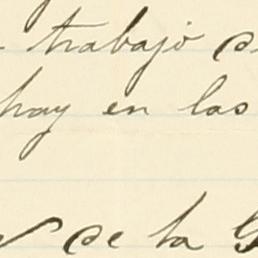 trabajo
hay en las
de la